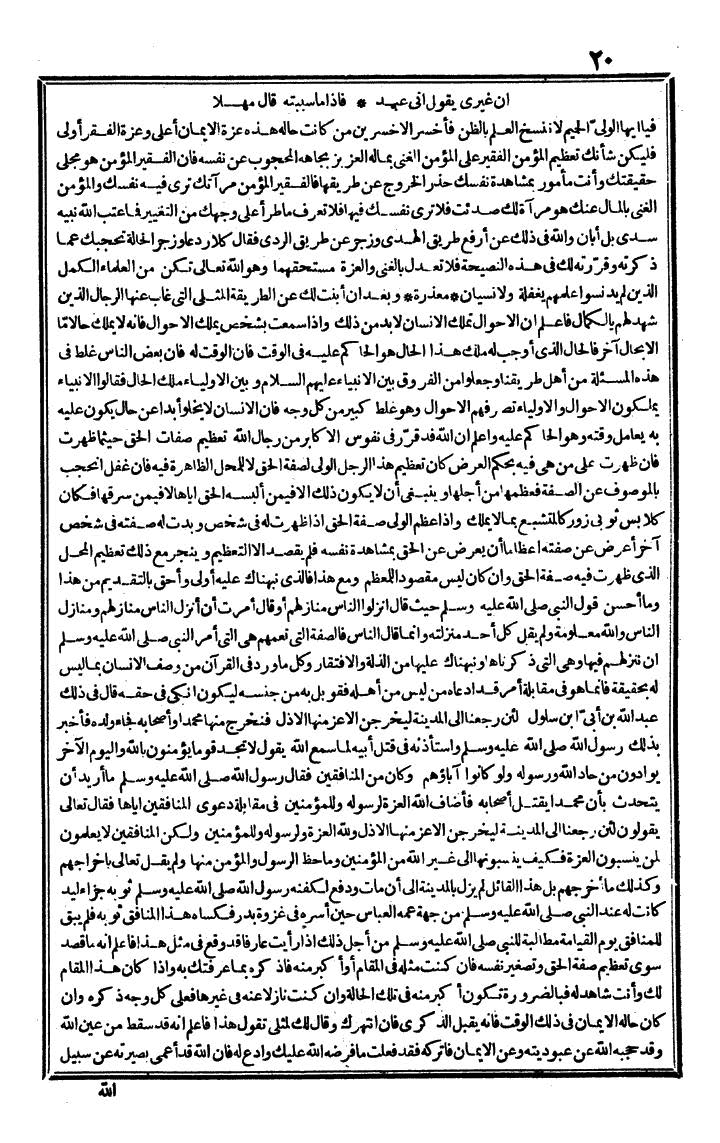 ٢٠
ان غيري يقول انى عبد * فاذا ما سببته قال مهلا
فياايها الولي الحميم لا ننسخ العلم بالظن فأخسر الاخسرين من كانت حاله هذه عزة الايمان أعلى وعزة الفقر أولى
فليكن شأنك تعظيم المؤمن الفقير على المؤمن الغنى بماله العزيز بجاهه المحجوب عن نفسه فان الفقير المؤمن هو مجلى
حقيقتك وأنت مأمور بمشاهدة نفسك حذر الخروج عن طريقها فالفقير المؤمن مرآتك ترى فيه نفسك والمؤمن
الغنى بالمال عنك هو مرآة لك صدئت فلا ترى نفسك فيها فلا تعرف ما طرأ على وجهك من التغيير فاعتب الله نبيه
سدى بل أبان والله فى ذلك عن أرفع طريق الهدى وزجر عن طريق الردى فقال كلا ردعا وزجرا لحالة تحجبك عما
ذكرته وقررته لك فى هذه النصيحة فلا تعدل بالغنى والعزة مستحقهما وهو الله تعالى تكن من العلماء الكمل
الذين لم يدنسوا علمهم بغفلة ولا نسيان *معذرة* وبعد ان أبنت لك عن الطريقة المثلى التى غاب عنها الرجال الذين
شهد لهم بالكمال فاعلم ان الاحوال تملك الانسان لابد من ذلك واذا سمعت بشخص يملك الاحوال فانه لا يملك حالا ما
الا بحال آخر فالحال الذى أوجب له ملك هذا الحال هو الحاكم عليه فى الوقت فان الوقت له فان بعض الناس غلط فى
هذه المسئلة من أهل طريقنا وجعلوا من الفروق بين الانبياء عليهم السلام وبين الاولياء ملك الحال فقالوا الانبياء
يملكون الاحوال والاولياء تصرفهم الاحوال وهو غلط كبير من كل وجه فان الانسان لا يخلو أبدا عن حال يكون عليه
به يعامل وقته وهو الحاكم عليه واعلم ان الله قد قرر فى نفوس الاكابر من رجال الله تعظيم صفات الحق حيثما ظهرت
فان ظهرت على من هى فيه بحكم العرض كان تعظيم هذا الرجل الولى لصفة الحق لا للمحل الظاهرة فيه فان غفل انحجب
بالموصوف عن الصفة فعظمها من أجلها وينبغى أن لا يكون ذلك الا فيمن ألبسه الحق اياها لا فيمن سرقها فكان
كلابس ثوبى زور كالمتشبع بما لا يملك واذا عظم الولى صفة الحق اذا ظهرت له فى شخص وبدت له صفته فى شخص
آخر أعرض عن صفته اعظاما أن يعرض عن الحق بمشاهدة نفسه فلم يقصد الا التعظيم وينجر مع ذلك تعظيم المحل
الذى ظهرت فيه صفة الحق وان كان ليس مقصود المعظم ومع هذا فالذى نبهناك عليه أولى وأحق بالتقديم من هذا
وما أحسن قول النبى صلى الله عليه وسلم حيث قال انزلوا الناس منازلهم أو قال أمرت أن أنزل الناس منازلهم ومنازل
الناس والله معلومة ولم يقل كل أحد منزلته وانما قال الناس فالصفة التى تعمهم هى التى أمر النبى صلى الله عليه وسلم
ان ننزلهم فيها وهى التى ذكرناها ونبهناك عليها من الذلة والافتقار وكل ما ورد فى القرآن من وصف الانسان بما ليس
له بحقيقة فانما هو فى مقابلة أمر قد ادعاه من ليس من أهله فقوبل به من جنسه ليكون انكى فى حقه قال فى ذلك
عبد الله بن أبى ابن سلول لئن رجعنا الى المدينة ليخرجن الاعز منها الاذل فنخرج منها محمدا وأصحابه فجاء ولده فأخبر
بذلك رسول الله صلى الله عليه وسلم واستأذنه فى قتل أبيه لما سمع الله يقول لا تجد قوما يؤمنون بالله واليوم الآخر
يوادون من حاد الله ورسوله ولو كانوا آباؤهم وكان من المنافقين فقال رسول الله صلى الله عليه وسلم ما أريد أن
يتحدث بأن محمدا يقتل أصحابه فأضاف الله العزة لرسوله وللمؤمنين فى مقابلة دعوى المنافقين اياها فقال تعالى
يقولون لئن رجعنا الى المدينة ليخرجن الاعز منها الاذل ولله العزة ولرسوله وللمؤمنين ولكن المنافقين لا يعلمون
لمن ينسبون العزة فكيف ينسبونها الى غير الله من المؤمنين وما حظ الرسول والمؤمن منها ولم يقل تعالى باخراجهم
وكذلك ما أخرجهم بل هذا القائل لم يزل بالمدينة الى أن مات ودفع لكفنه رسول الله صلى الله عليه وسلم ثوبه جزاء ليد
كانت له عند النبى صلى الله عليه وسلم من جهة عمه العباس حين أسره فى غزوة بدر فكساه هذا المنافق ثوبه فلم يبق
للمنافق يوم القيامة مطالبة للنبى صلى الله عليه وسلم من أجل ذلك اذا رأيت عارفا قد وقع فى مثل هذا فاعلم انه ما قصد
سوى تعظيم صفة الحق وتصغير نفسه فان كنت مثله فى المقام أو أكبر منه فذكره بما عرفتك به واذا كان هذا المقام
لك وأنت شاهد له فبالضرورة تكون أكبر منه فى تلك الحالة وان كنت نازلا عنه فى غيرها فعلى كل وجه ذكره وان
كان حاله الايمان فى ذلك الوقت فانه يقبل الذكرى فان انتهرك وقال لك لمثلى تقول هذا فاعلم انه قد سقط من عين الله
وقد حجبه الله عن عبوديته وعن الايمان فاتركه فقد فعلت ما فرضه الله عليك وادع له فان الله قد أعمى بصيرته عن سبيل
الله